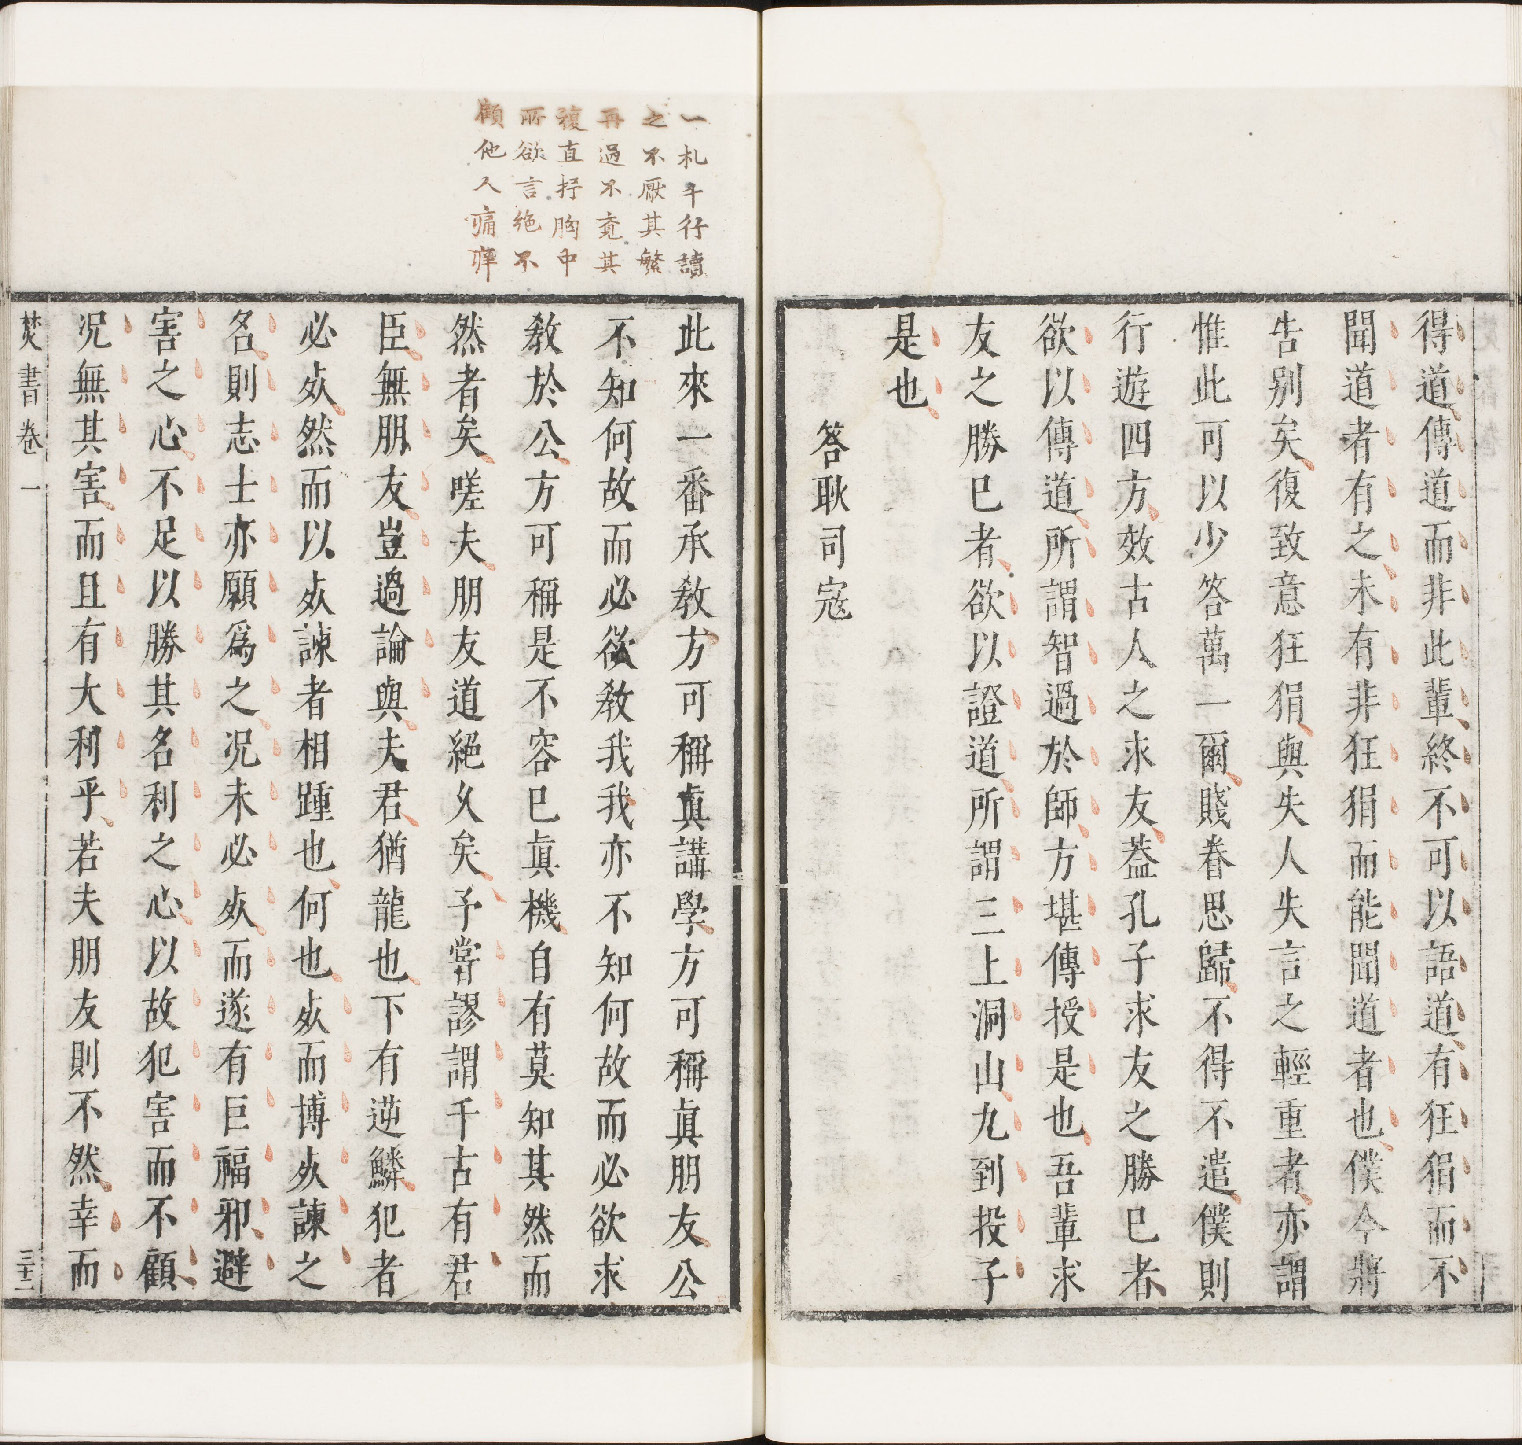 得道傳道而非此輩終不可以語道有狂狷而不
聞道者有之未有非狂狷而能聞道者也僕今將
告别矣復致意狂狷與失人失言之輕重者亦謂
惟此可以少答萬一爾賤眷思歸不得不遣僕則
行遊四方效古人之求友葢孔子求友之勝已者
欲以傳道所謂智過於師方堪傳授是也吾輩求
友之勝已者欲以證道所謂三上洞山九到投子
是也
答耿司寇
一札千行讀
之不厭其繁
再過不覺其
複直抒胸中
所欲言絶不
顧他人痛癢
此來一番承教方可稱眞講學方可稱眞朋友公
不知何故而必欲教我我亦不知何故而必欲求
教於公方可稱是不容已眞機自有莫知其然而
然者矣嗟夫朋友道絕久矣予嘗謬謂千古有君
臣無朋友豈過論與夫君猶龍也下有逆鱗犯者
必㱔然而以㱔諫者相踵也何也㱔而博㱔諫之
名則志士亦願爲之况未必㱔而遂有巨福邪避
害之心不足以勝其名利之心以故犯害而不顧
况無其害而且有大利乎若夫朋友則不然幸而
焚書卷一
三十二